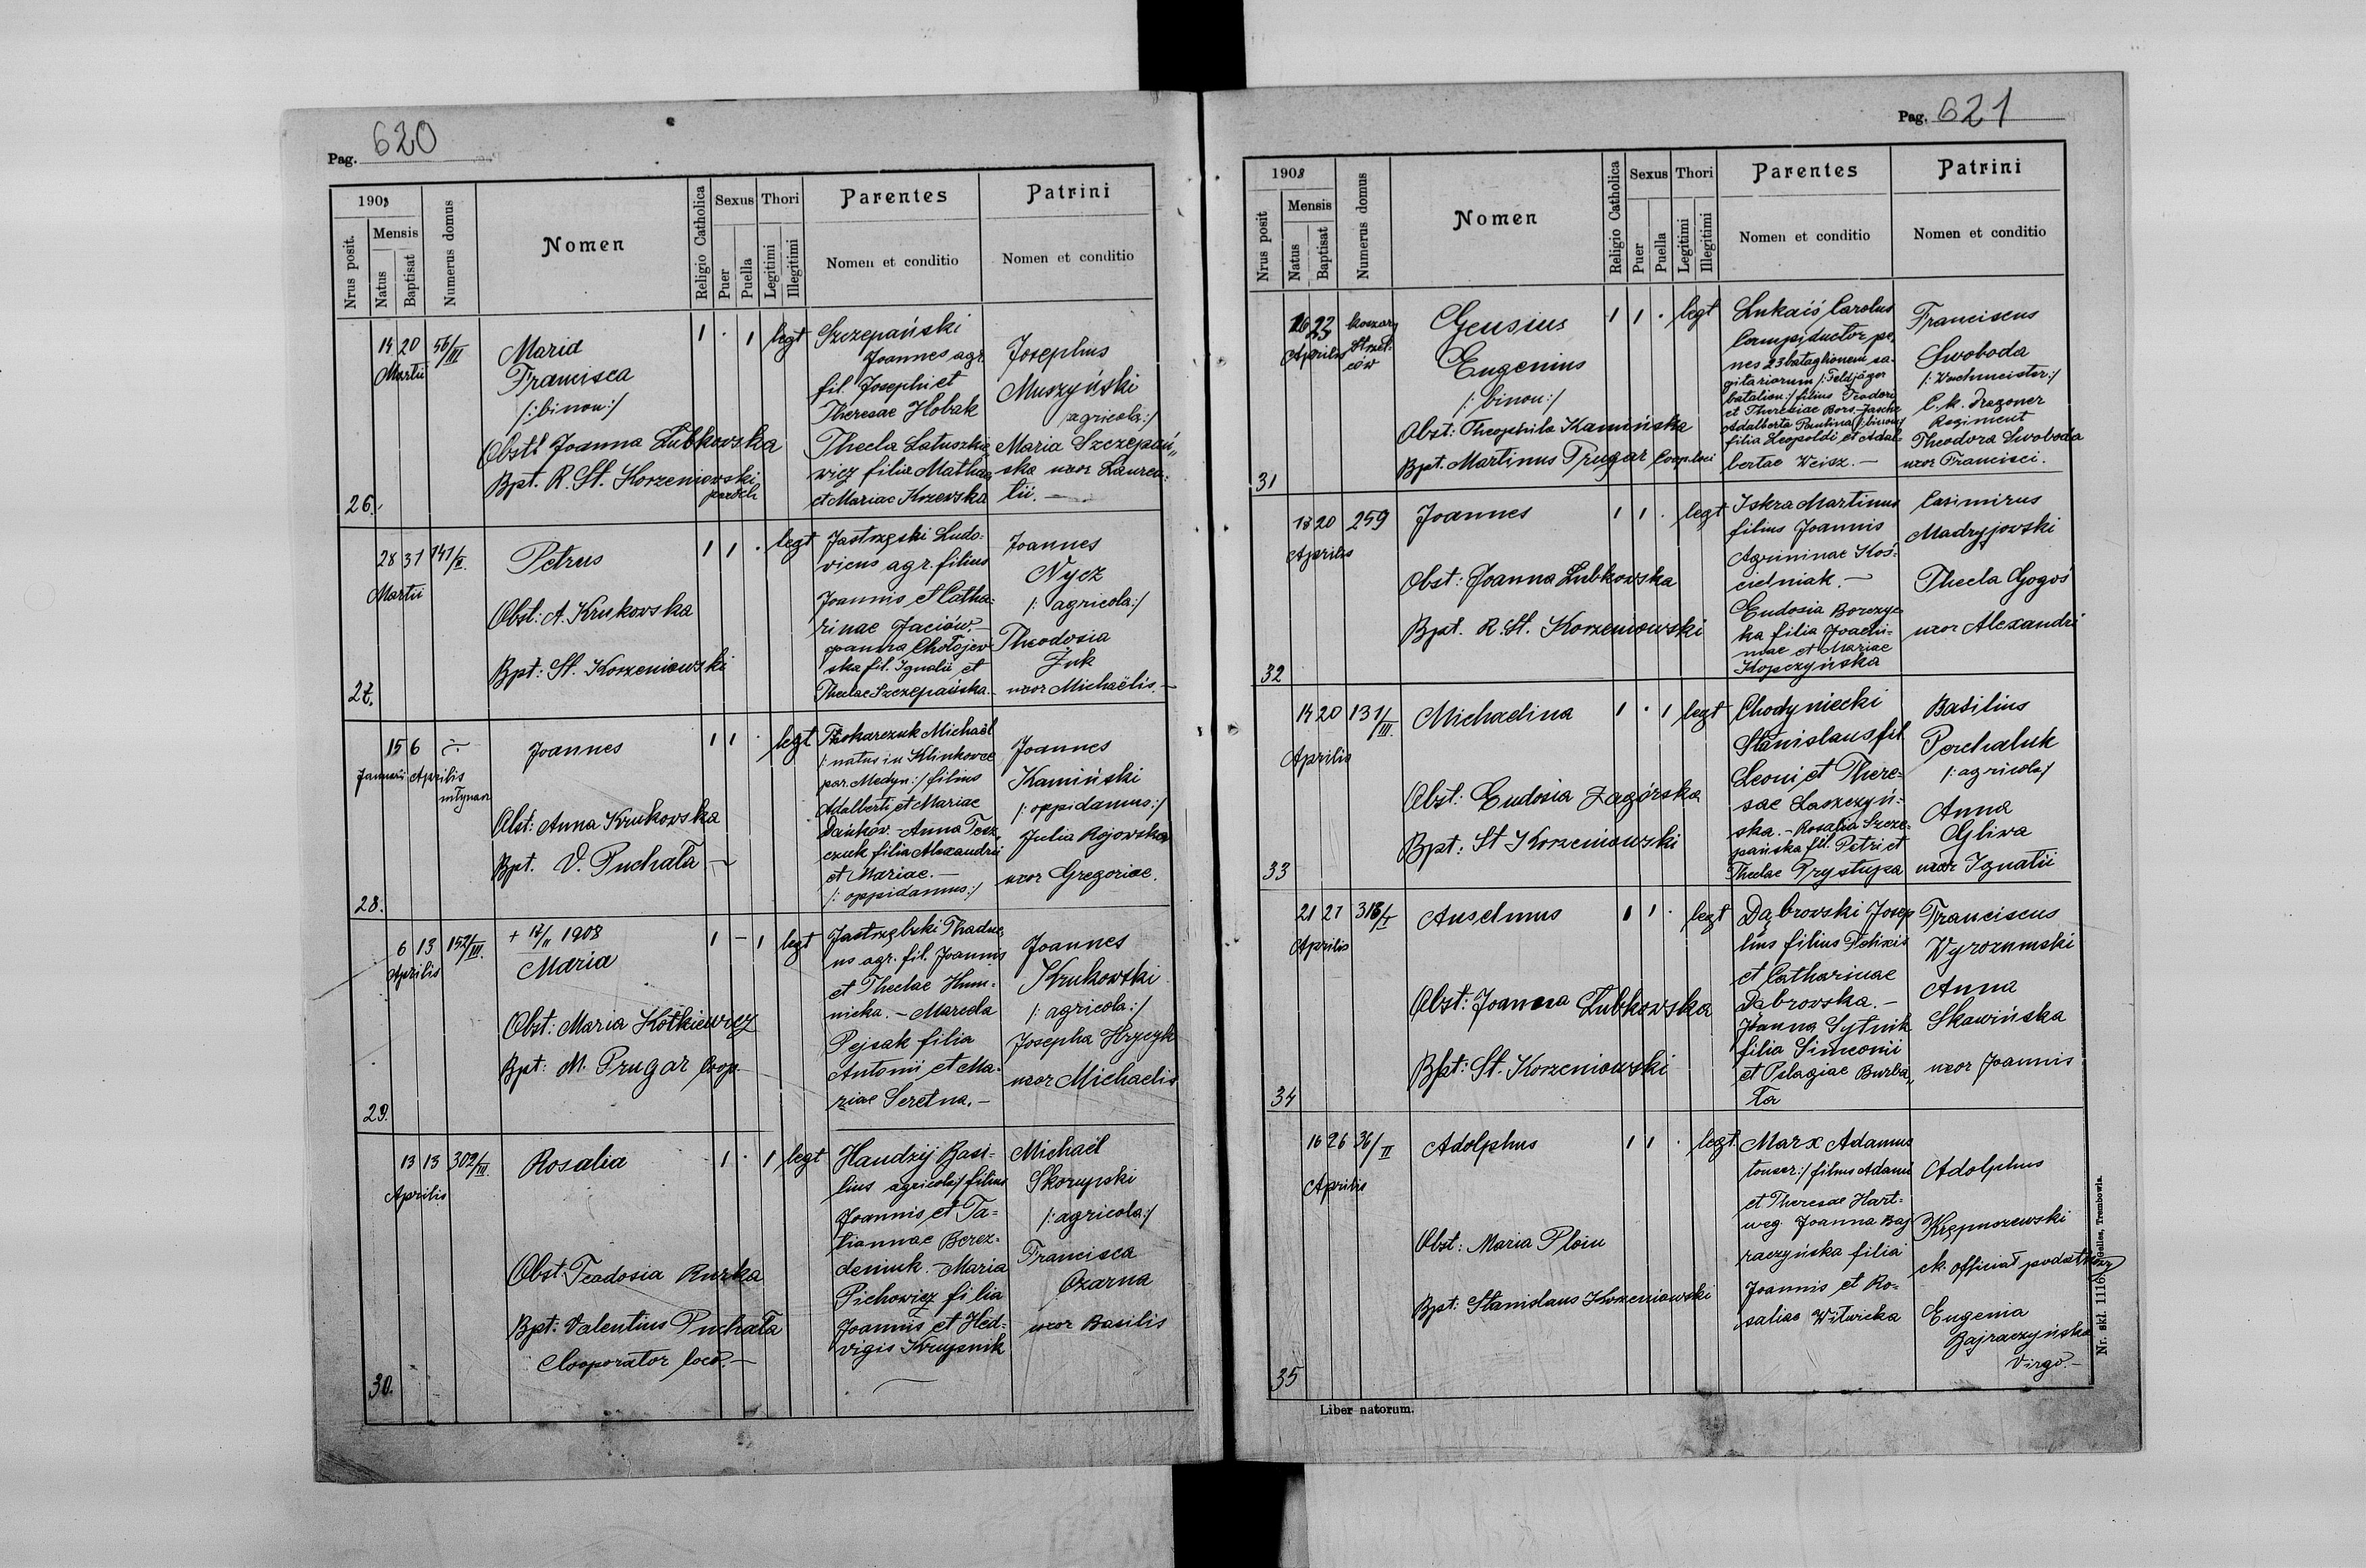 Pag. 620
1908
Nrus posit.
Mensis
Natus
Baptisat
Numerus domus
Nomen
Religio Catholica
Sexus
Puer
Puella
Thori
Legitimi
Illegitimi
Parentes
Nomen et conditio
Patrini
Nomen et conditio
26.
14 20 56/III
Martii
Maria
Francisca
/:binom:/
Obst: Joanna Łubkowska
Bpt. R. St. Korzeniowski
1 . 1 legt
Szczepański
Joannes agr.
fil. Josephi et
Theresae Hobak
Thecla Latuszkie
wicz filia Mathaei
et Mariae Kozewska
Josephus
Muszyński
/agricola:/
Maria Szczepań„
ska uxor Lauren:
tii. —
27.
28 31 141/II.
Martii
Petrus
Obst: A. Krukowska
Bpt: St. Korzeniowski
1 1 . legt
Jastrzęski Ludo:
vicus agr. filius
Joannis et Catha:
rinae Jaciów.—
Joanna Chołojew
ska fil. Ignatii et
Theclae Szczepańska.—
Joannes
Nycz
/: agricola:/
Theodosia
Żuk
uxor Michaëlis.—
28.
15 6
Januarii Aprilis
młynarz
Joannes
Obst: Anna Krukowska
Bpt. V. Puchała.—
1 1 . legt
Tkokarczuk Michaël
/: natus in Klinkowce
par. Medyn:/ filius
Adalberti et Mariae
Dańkow.- Anna Tesz„
czuk filia Alexandrii
et Mariae.—
/: oppidanus:/
Joannes
Kamiński
/: oppidanus:/
Julia Rojowska
uxor Gregoriae.
29.
6 13 152/III.
Aprilis
+ 12/11 1908
Maria
Obst: Maria Kotkiewicz
Bpt: M. Prugar Coop.
1 - 1 legt
Jastrzębski Thadae„
us agr. fil. Joannis
et Theclae Humi„
nicka. - Marcela
Pejsak filia
Antonii et Ma„
riae Seretna.—
Joannes
Krukowski
/: agricola:/
Josepha Hrycyk
uxor Michaelis
30.
13 13 302/III
Aprilis
Rosalia
Obst: Teadosia Rurka
Bpt: Valentius Puchała
Cooperator loco.—
1 . 1 legt
Handzij Basi-
lius agricola/ filius
Joannis et Ta=
tiannae Berez-
deniuk.- Maria
Pichowicz filia
Joannis et Hed=
vigis Krupnik
Michaël
Skorupski
/: agricola:/
Francisca
Czarna
uxor Basilis
Pag. 621
1908
Nrus posit
Mensis
Natus
Baptisat
Numerus domus
Nomen
Religio Catholica
Sexus
Puer
Puella
Thori
Legitimi
Illegitimi
Parentes
Nomen et conditio
Patrini
Nomen et conditio
31
16 23 koszary
Aprilis Strzel:
ców
Geusius
Eugenius
/: binom:/
Obst: Theophila Kamińska
Bpt. Martinus Prugar Coop. loci
1 1 . legt
Lukaić Carolus
Campiductor pe„
nes 23 bataglionem sa-
gitariorum /: Feldjäger
batalion:/ filius Teodori
et Theresiae Bors.- Jasche
Adalberta Paulina /: binom:/
filia Leopoldi et Adal-
bertae Weisz.—
Franciscus
Swoboda
/: Wachmeister:/
C. k. Dragoner
Regiment
Theodora Swoboda
uxor Francisci.
32
18 20 259
Aprilis
Joannes
Obst: Joanna Łubkowska
Bpt. R. St. Korzeniowski
1 1 . legt
Iskra Martinus
filius Joannis
Agrininae Koś-
cielniak.—
Eudosia Borczyc
ka filia Joachi=
mae et Mariae
Kopczyńska
Casimirus
Madryjowski
Thecla Gogoś
uxor Alexandri
33
14 20 131/III.
Aprilis
Michaelina
Obst: Eudosia Zagórska
Bpt: St Korzeniowski
1 . 1 legt
Chodyniecki
Stanislaus fil.
Leoni et There=
sae Laszczyń-
ska.- Rosalia Szcze-
pańska fil. Petri et
Theclae Prystupa
Basilius
Perchaluk
/: agricola/
Anna
Gliwa
uxor Ignatii
34
21 27 318/I
Aprilis
Anselmus
Obst: Joanna Łubkowska
Bpt: St. Korzeniowski
1 1 . legt
Dąbrowski Josep
hus filius Felixis
et Catharinae
Dąbrowska.—
Joanna Sytnik
filia Simeonii
et Pelagiae Burba„
ła
Franciscus
Wyrozumski
Anna
Skawińska
uxor Joannis
35
16 26 36/II
Aprilis
Adolphus
Obst: Maria Ploiu
Bpt: Stanislaus Korzeniowski
1 1 . legt.
Marx Adamus
tonsor:/ filius Adami
et Theresae Hart=
weg. Joanna Baj
raczyńska filia
Joannis et Ro=
saliae Witwicka
Adolphus
ck. officiał podatkowy
Eugenia
Bajraczyńska
Virgo.—
Liber natorum.